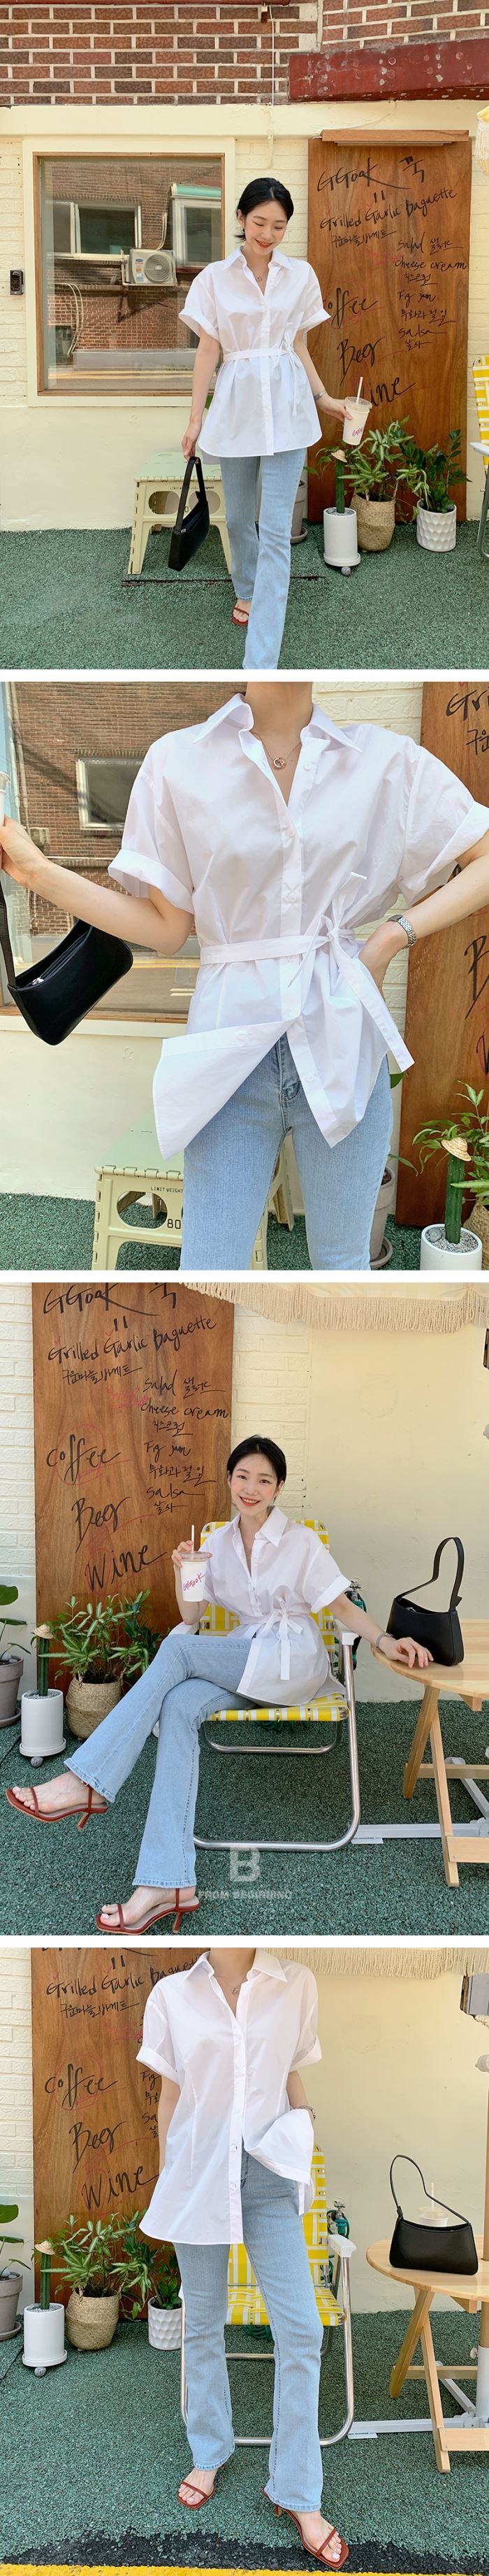 GGoaK 꾹
"
Grilled Garlic Baguette
구운마늘바게트
Salad 샐러드
cheese cream
치즈크림
Fig jam
무화과잼
Salsa
살사
coffee
Beer
Wine
LIMIT WEIGHT
80
GGoaK 꾹
"
Grilled Garlic Baguette
구운마늘바게트
Salad 샐러드
cheese cream
치즈크림
Fig jam
무화과잼
Salsa
살사
Coffee
Beer
Wine
B
FROM BEGINNING
Grilled Garlic Bague
구운마늘바게트
Coffee
Fig
Beer
Sa
Wine